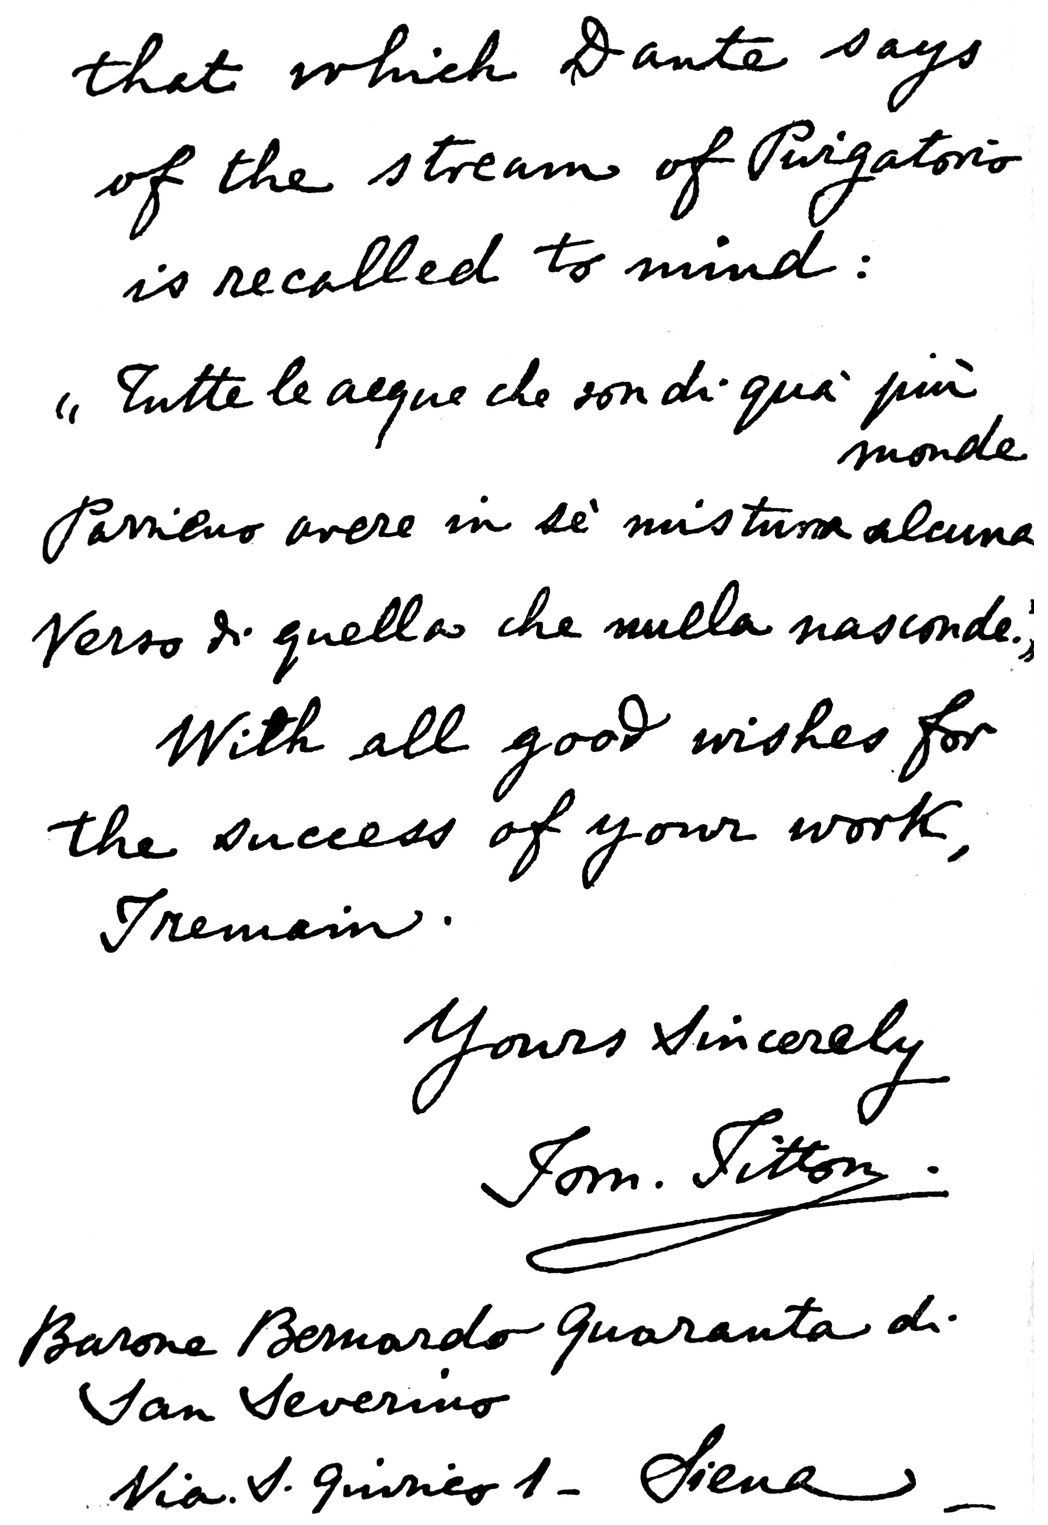 that which Dante says
of the stream of Purgatorio
is recalled to mind :
„ Tutte le acque che son di quà più
monde
Parrieno avere in sè mistura alcuna
Verso di quella che nulla nasconde. „
With all good wishes for
the success of your work,
I remain .
Yours Sincerely
Tom. Titton .
Barone Bernardo Quaranta di
San Severino
Via. S. Quirico 1 - Siena -